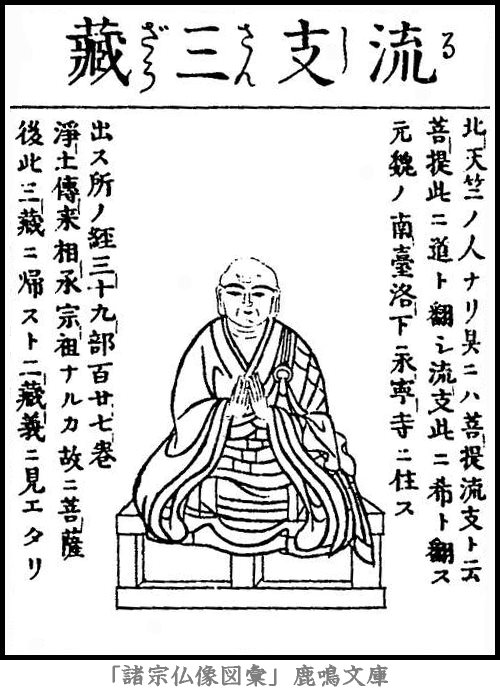 流支三藏
る し さん ざう
北天竺ノ人ナリ具ニハ菩提流支ト云
菩提此ニ道ト翻シ流支此ニ希ト翻ス
元魏ノ南臺洛下ニ永寧寺ニ住ス
出ス所ノ經三十九部百廿七巻
淨土傳来相承宗祖ナルカ故ニ菩薩
後此三藏ニ帰スト二藏義ニ見エタリ
「諸宗仏像図彙」鹿鳴文庫